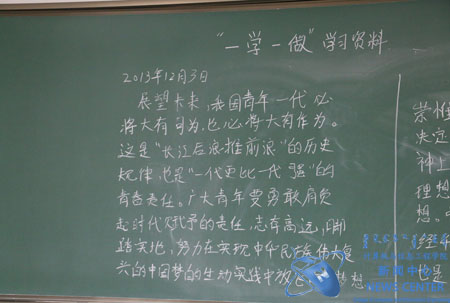 “一学一做”学习资料
2013年12月3日
展望未来,我国青年一代必
将大有可为,也必将大有作为。
这是“长江后浪推前浪”的历史
规律,也是“一代更比一代强”的
青春责任。广大青年要勇敢肩负
起时代赋予的责任,志存高远,脚
踏实地,努力在实现中华民族伟大复
兴的中国梦的生动实践中放飞
梦想
崇
决定
神上
理想
想。
经
也是
新闻中心
NEWS CENTER